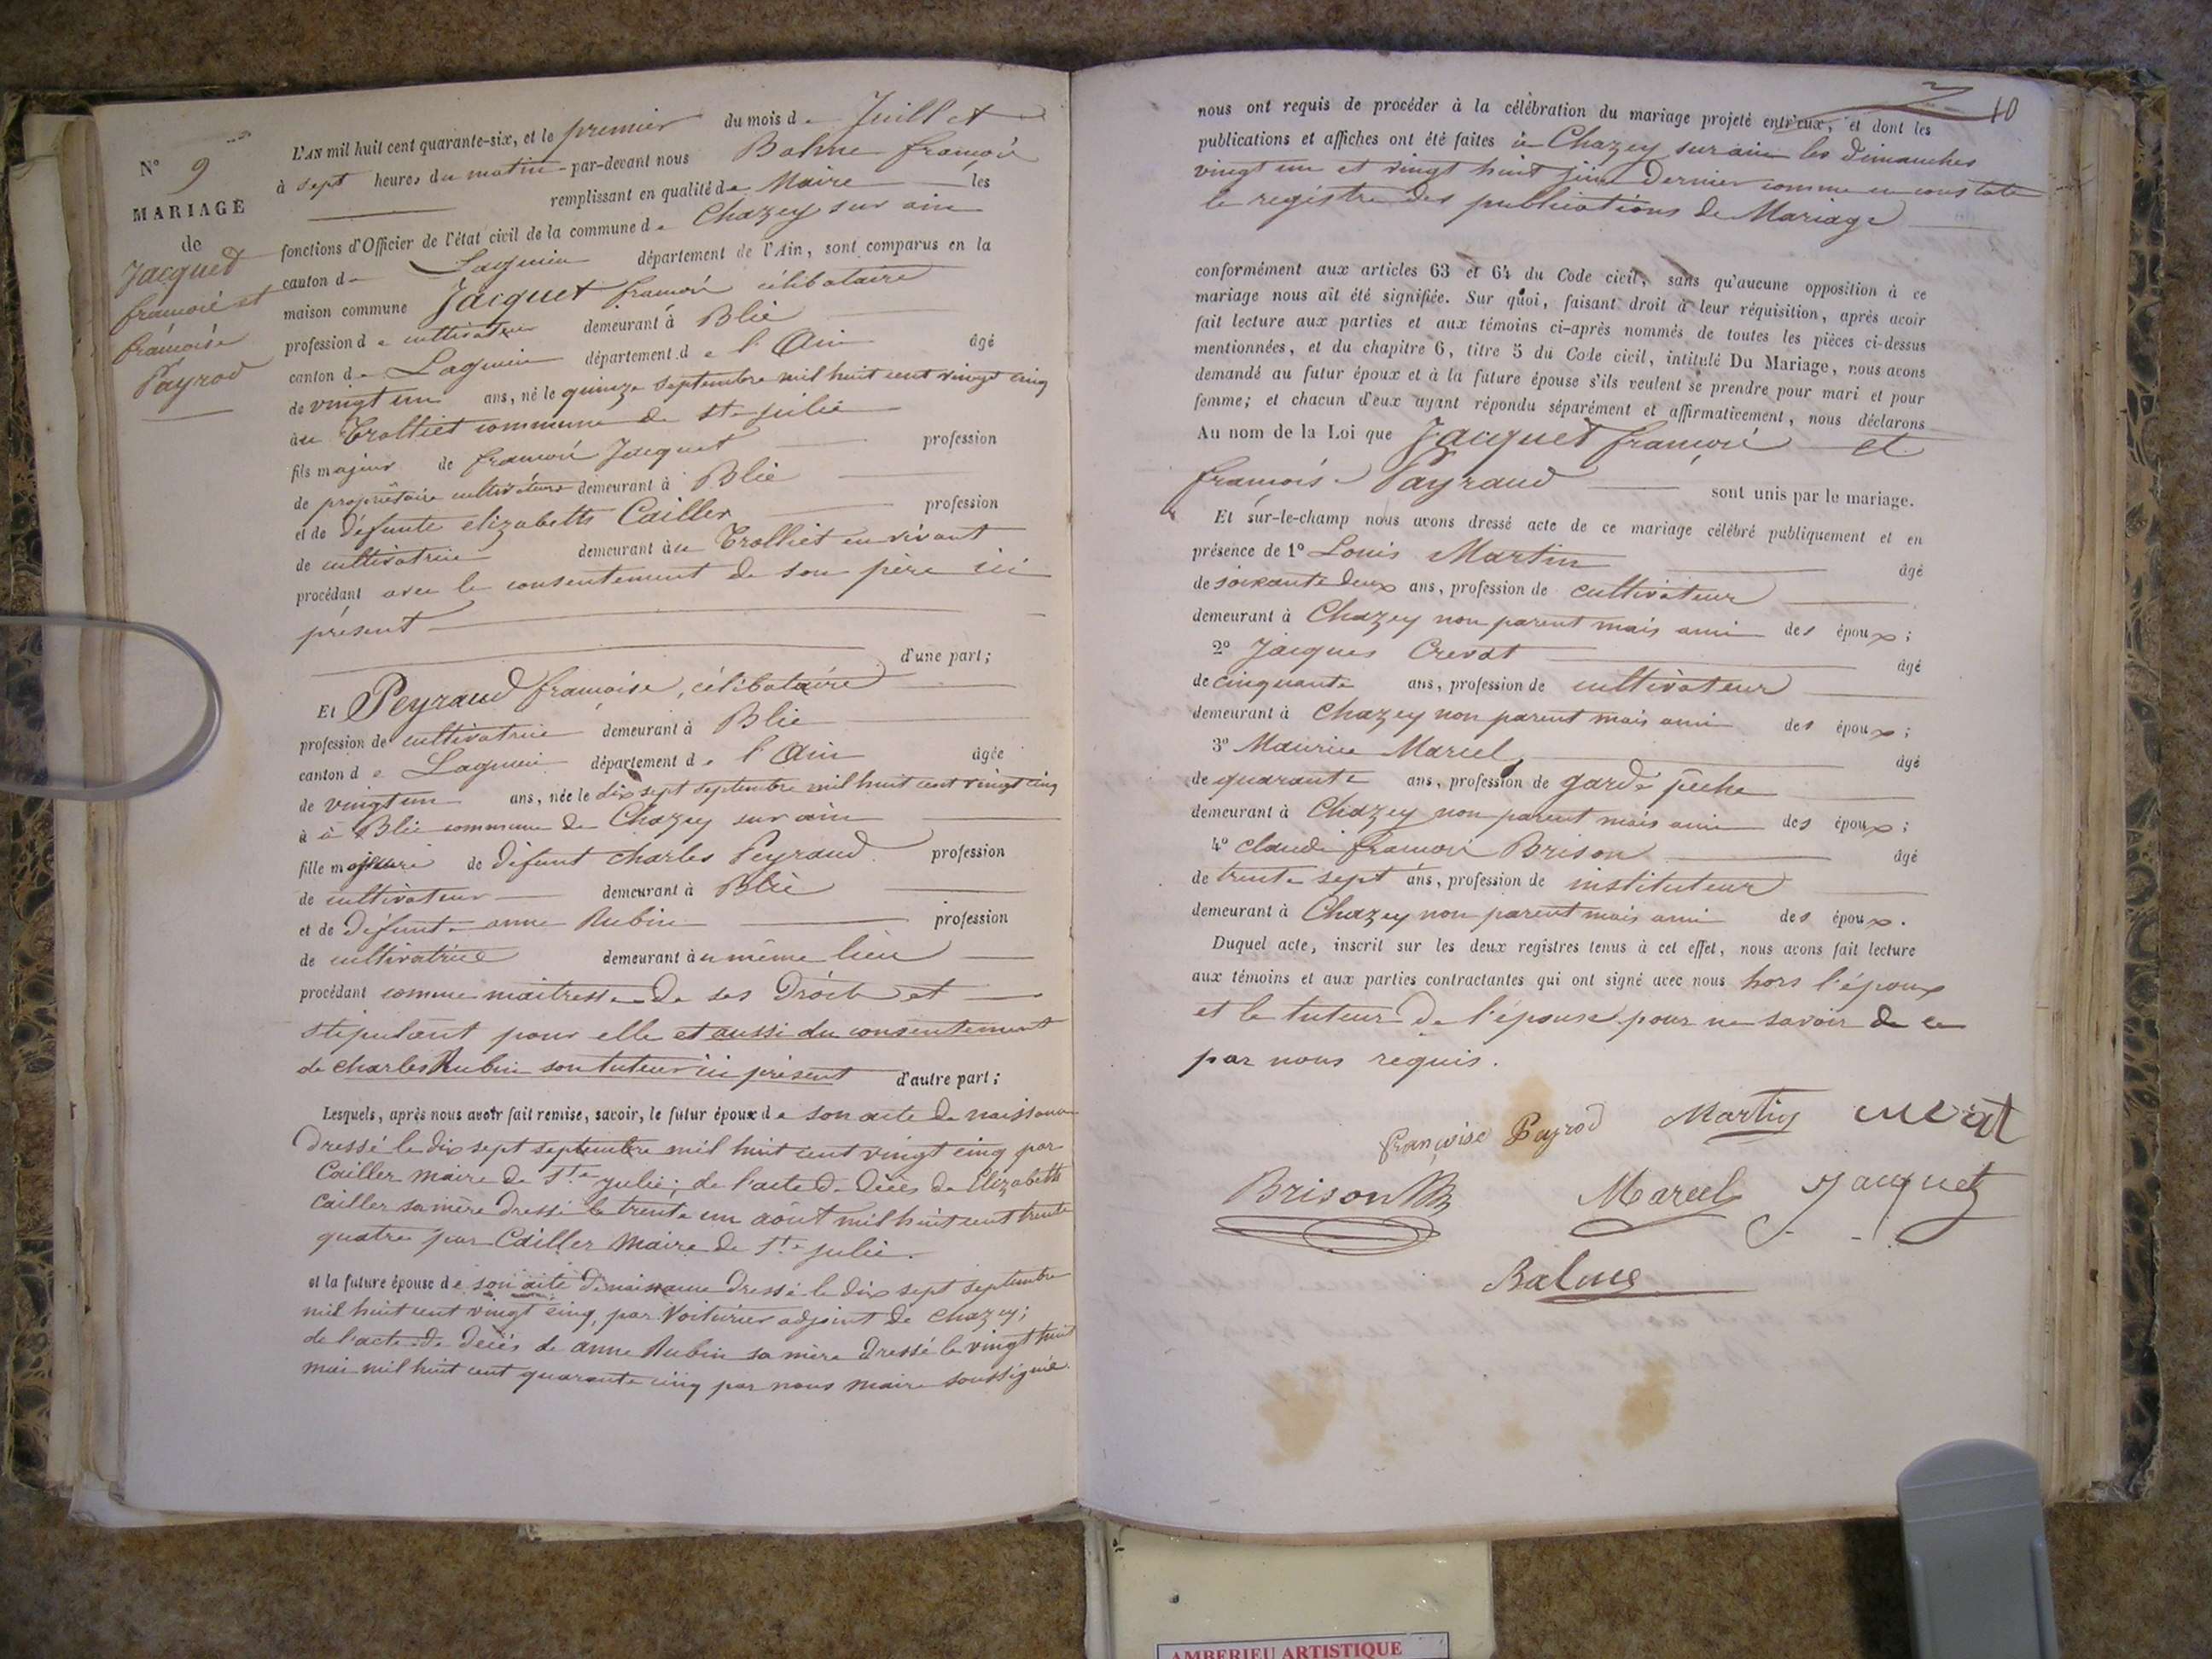 N° 9
MARIAGE
de
Jacquet
françois et
françoise
Payrod
L'AN mil huit cent quarante-six, et le premier du mois de Juillet
à sept heures du matin par-devant nous Balme françois
remplissant en qualité de Maire les
fonctions d'Officier de l'état civil de la commune de Chazey sur ain
canton de Lagnieu département de l'Ain, sont comparus en la
maison commune Jacquet françois célibataire
profession de cultivateur demeurant à Blie
canton de Lagnieu département de l'Ain âgé
de vingt un ans, né le quinze septembre mil huit cent vingt cinq
à au Trolliet commune de Ste julie
fils majeur de françois Jacquet profession
de propriétaire cultivateur demeurant à Blie
et de défunte elizabeth Cailler profession
de cultivatrice demeurant à au Trolliet en vivant
procédant avec le consentement de son père ici
présent
d'une part;
Et Peyraud françoise, célibataire
profession de cultivatrice demeurant à Blie
canton de Lagnieu département de l'Ain âgée
de vingt un ans, née le dix sept septembre mil huit cent vingt cinq
à à Blie commune de Chazey sur ain
fille majeure de défunt charles Peyraud profession
de cultivateur demeurant à Blie
et de défunte anne Rubin profession
de cultivatrice demeurant à au même lieu
procédant comme maitresse de ses Droits et
stipulant pour elle et aussi du consentement
de charles Rubin son tuteur ici présent d'autre part;
Lesquels, après nous avoir fait remise, savoir, le futur époux de son acte de naissance
Dressé le dix sept septembre mil huit cent vingt cinq par
Cailler maire de Ste julie; de l'acte de Décès de Elizabeth
Cailler sa mère Dressé le trente un août mil huit cent trente
quatre par Cailler Maire de Ste julie.
et la future épouse de son acte de naissance Dressé le dix sept septembre
mil huit cent vingt cinq, par Voiturier adjoint de chazey;
de l'acte de Décès de anne Rubin sa mère Dressé le vingt huit
mai mil huit cent quarante cinq par nous maire soussigné.
10
nous ont requis de procéder à la célébration du mariage projeté entr'eux, et dont les
publications et affiches ont été faites à Chazey sur ain les dimanches
vingt un et vingt huit juin Dernier comme en constate
le registre des publications de Mariage
conformément aux articles 63 et 64 du Code civil, sans qu'aucune opposition à ce
mariage nous ait été signifiée. Sur quoi, faisant droit à leur réquisition, après avoir
fait lecture aux parties et aux témoins ci-après nommés de toutes les pièces ci-dessus
mentionnées, et du chapitre 6, titre 5 du Code civil, intitulé Du Mariage, nous avons
demandé au futur époux et à la future épouse s'ils veulent se prendre pour mari et pour
femme; et chacun d'eux ayant répondu séparément et affirmativement, nous déclarons
Au nom de la Loi que Jacquet françois et
françoise Payraud sont unis par le mariage.
Et sur-le-champ nous avons dressé acte de ce mariage célébré publiquement et en
présence de 1° Louis Martin âgé
de soixante deux ans, profession de cultivateur
demeurant à Chazey non parent mais ami des époux;
2° Jacques Crevat âgé
de cinquante ans, profession de cultivateur
demeurant à Chazey non parent mais ami des époux;
3° Maurice Marcel âgé
de quarante ans, profession de garde pêche
demeurant à Chazey non parent mais ami des époux;
4° claude françois Brison âgé
de trente sept ans, profession de instituteur
demeurant à Chazey non parent mais ami des époux.
Duquel acte, inscrit sur les deux registres tenus à cet effet, nous avons fait lecture
aux témoins et aux parties contractantes qui ont signé avec nous hors l'époux
et le tuteur de l'épouse pour ne savoir de ce
par nous requis.
françoise Peyrod Martin crevat
Brison Marcel Jacquet
Balme
AMBERIEU ARTISTIQUE